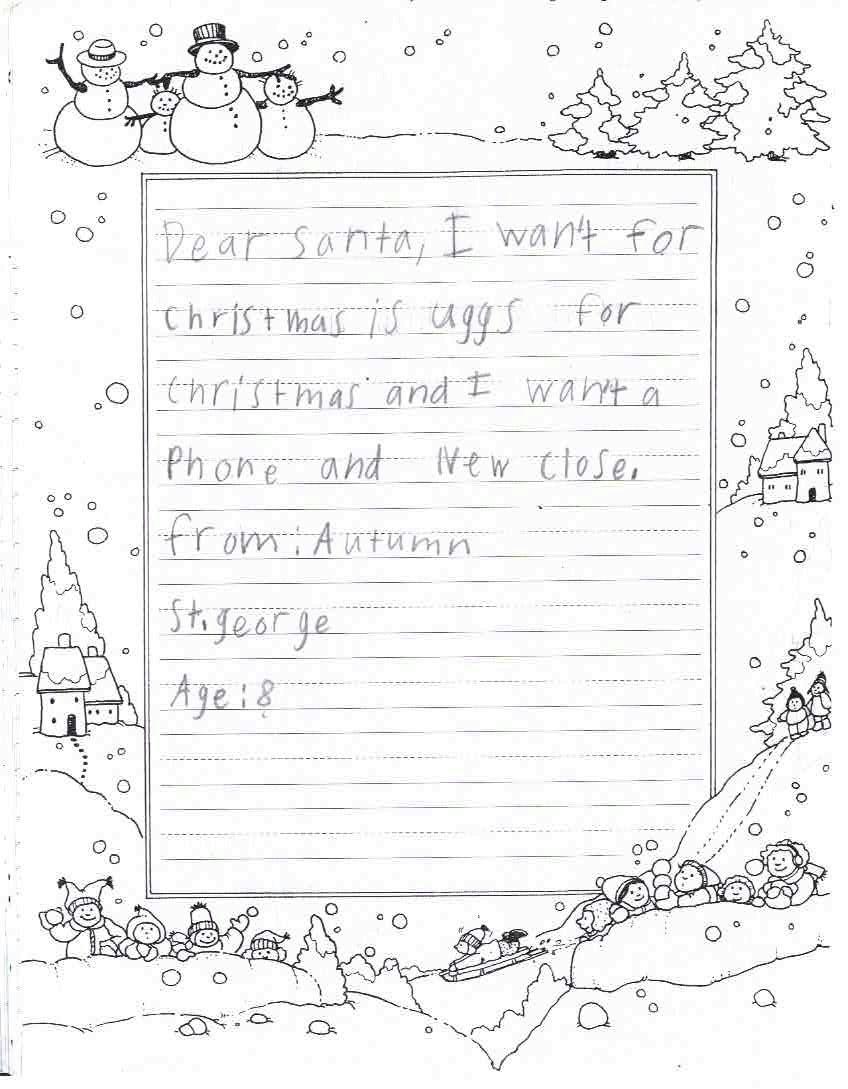 Dear Santa, I wan't for
Christmas is uggs for
Christmas and I wan't a
Phone and New Close.
from: Autumn
St. george
Age: 8